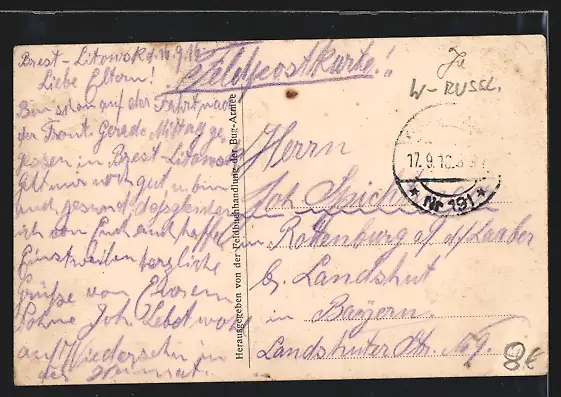 Brest-Litowsk d. 16.9.16
Liebe Eltern!
Bin schon auf der Fahrt nach
der Front. Gerade Mittag ge
gessen in Brest Litowsk
Geht mir noch gut u. bin
und gesund, dasgleiche
ich von Euch auch hoffe
Einstweilen herzliche
Grüße von Eurem
Sohne Joh. Lebet wohl
auf Wiedersehn in
der Heimat.
Feldpostkarte!
Herausgegeben von der Feldbuchhandlung der Bug-Armee
W-RUSSL.
17.9.16.
* Nr. 191 *
Herrn
Joh.
in Rottenburg a/d Laaber
bz. Landshut
in Bayern.
Landshuter Str. No 9.
8€